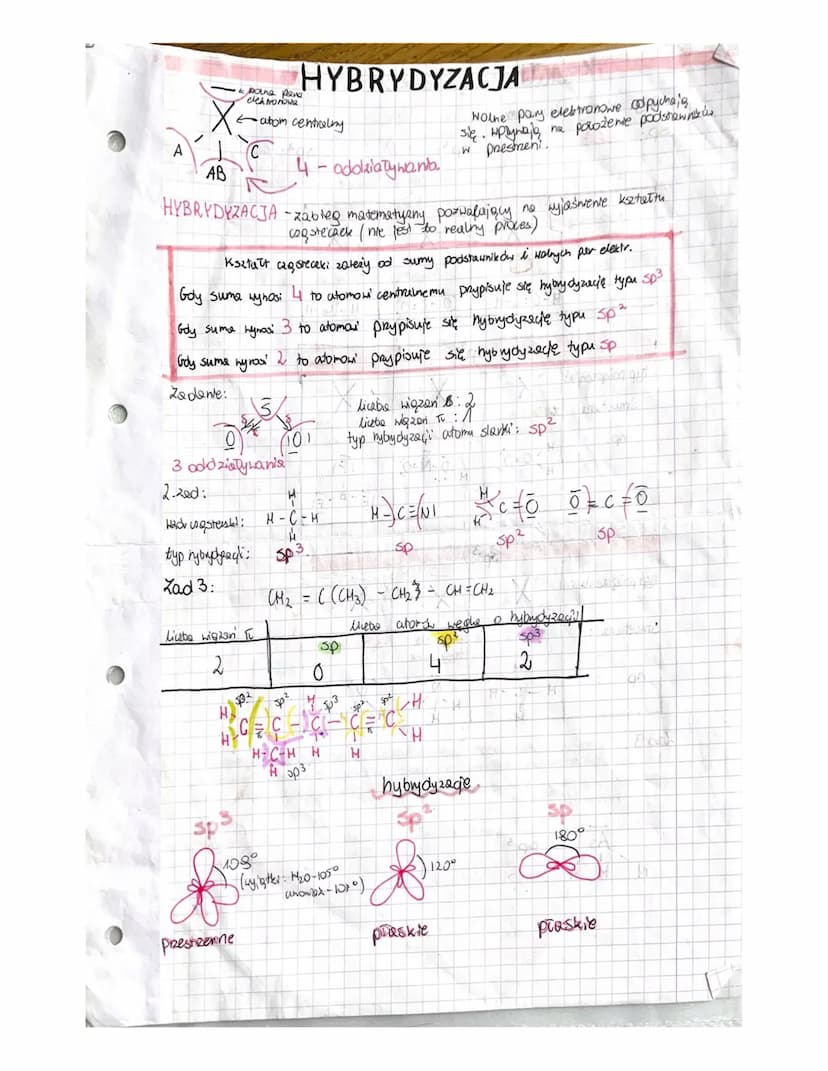 HYBRYDYZACJA
wolna para
elektronowa
X ← atom centralny
A AB C
4 - oddziaływania
Wolne pary elektronowe odpychają
się. Wpływają na położenie podstawników
w przestrzeni.
HYBRYDYZACJA - zabieg matematyczny pozwalający na wyjaśnienie kształtu
cząsteczek (nie jest to realny proces)
Kształt cząsteczki zależy od sumy podstawników i wolnych par elektr.
Gdy suma wynosi 4 to atomowi centralnemu przypisuje się hybrydyzację typu sp³
Gdy suma wynosi 3 to atomowi przypisuje się hybrydyzację typu sp²
Gdy suma wynosi 2 to atomowi przypisuje się hybrydyzację typu sp
Zadanie:
S
O O
3 oddziaływania
liczba wiązań δ: 2
liczba wiązań π: 1
typ hybrydyzacji atomu siarki: sp²
2.zad:
wzór cząsteczki:
H
H - C - H
H
H - C ≡ N
H
H C = O
O = C = O
typ hybrydyzacji: sp³ sp sp² sp
Zad 3:
CH₂ = C (CH₃) - CH₂ - CH = CH₂
liczba wiązań π
liczba atomów węgla o hybrydyzacji
sp sp² sp³
2 0 4 2
sp² sp² H sp³ sp² sp² H
H C = C - C - C = C
H π π H
H - C - H H H
H sp³
hybrydyzacje
sp³ sp² sp
109°
(wyjątki: H₂O - 105°
amoniak - 107°)
120°
180°
przestrzenne
płaskie
płaskie